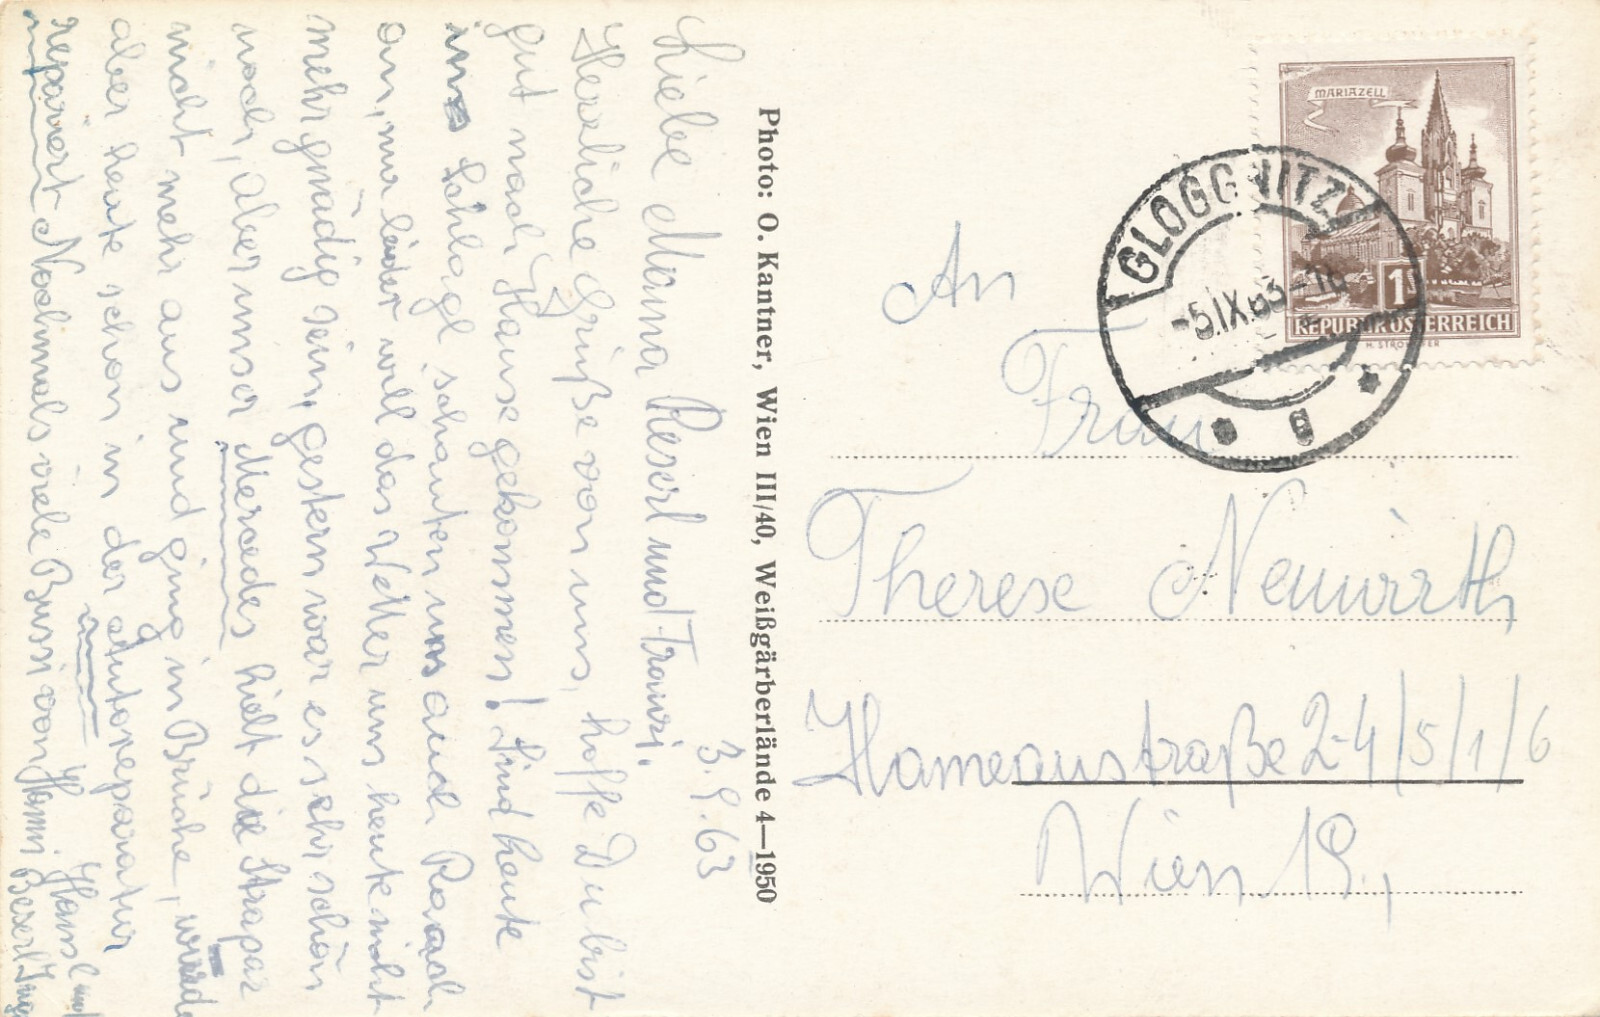 3.9.63
Liebe Mama Reserl und Franzi,
Herzliche Grüße von uns, hoffe Du bist
gut nach Hause gekommen! Sind heute
ins Schlagl schauten uns auch Raach
an, nur leider will das Wetter uns heute nicht
mehr gnädig sein, gestern war es sehr schön
noch, aber unser Mercedes hielt die Strapaz
nicht mehr aus und ging in Brüche, wurde
aber heute schon in der Autoreparatur
repariert Nochmals viele Bussi von Hansl und
Hanni Reserl Inge
Photo: O. Kantner, Wien III/40, Weißgärberlände 4—1950
MARIAZELL
1S
REPUBLIK ÖSTERREICH
GLOGGNITZ
-5.IX.63-16
g
An
Frau
Therese Neuwirth
Hameaustraße 2-4/5/1/6
Wien 19.,